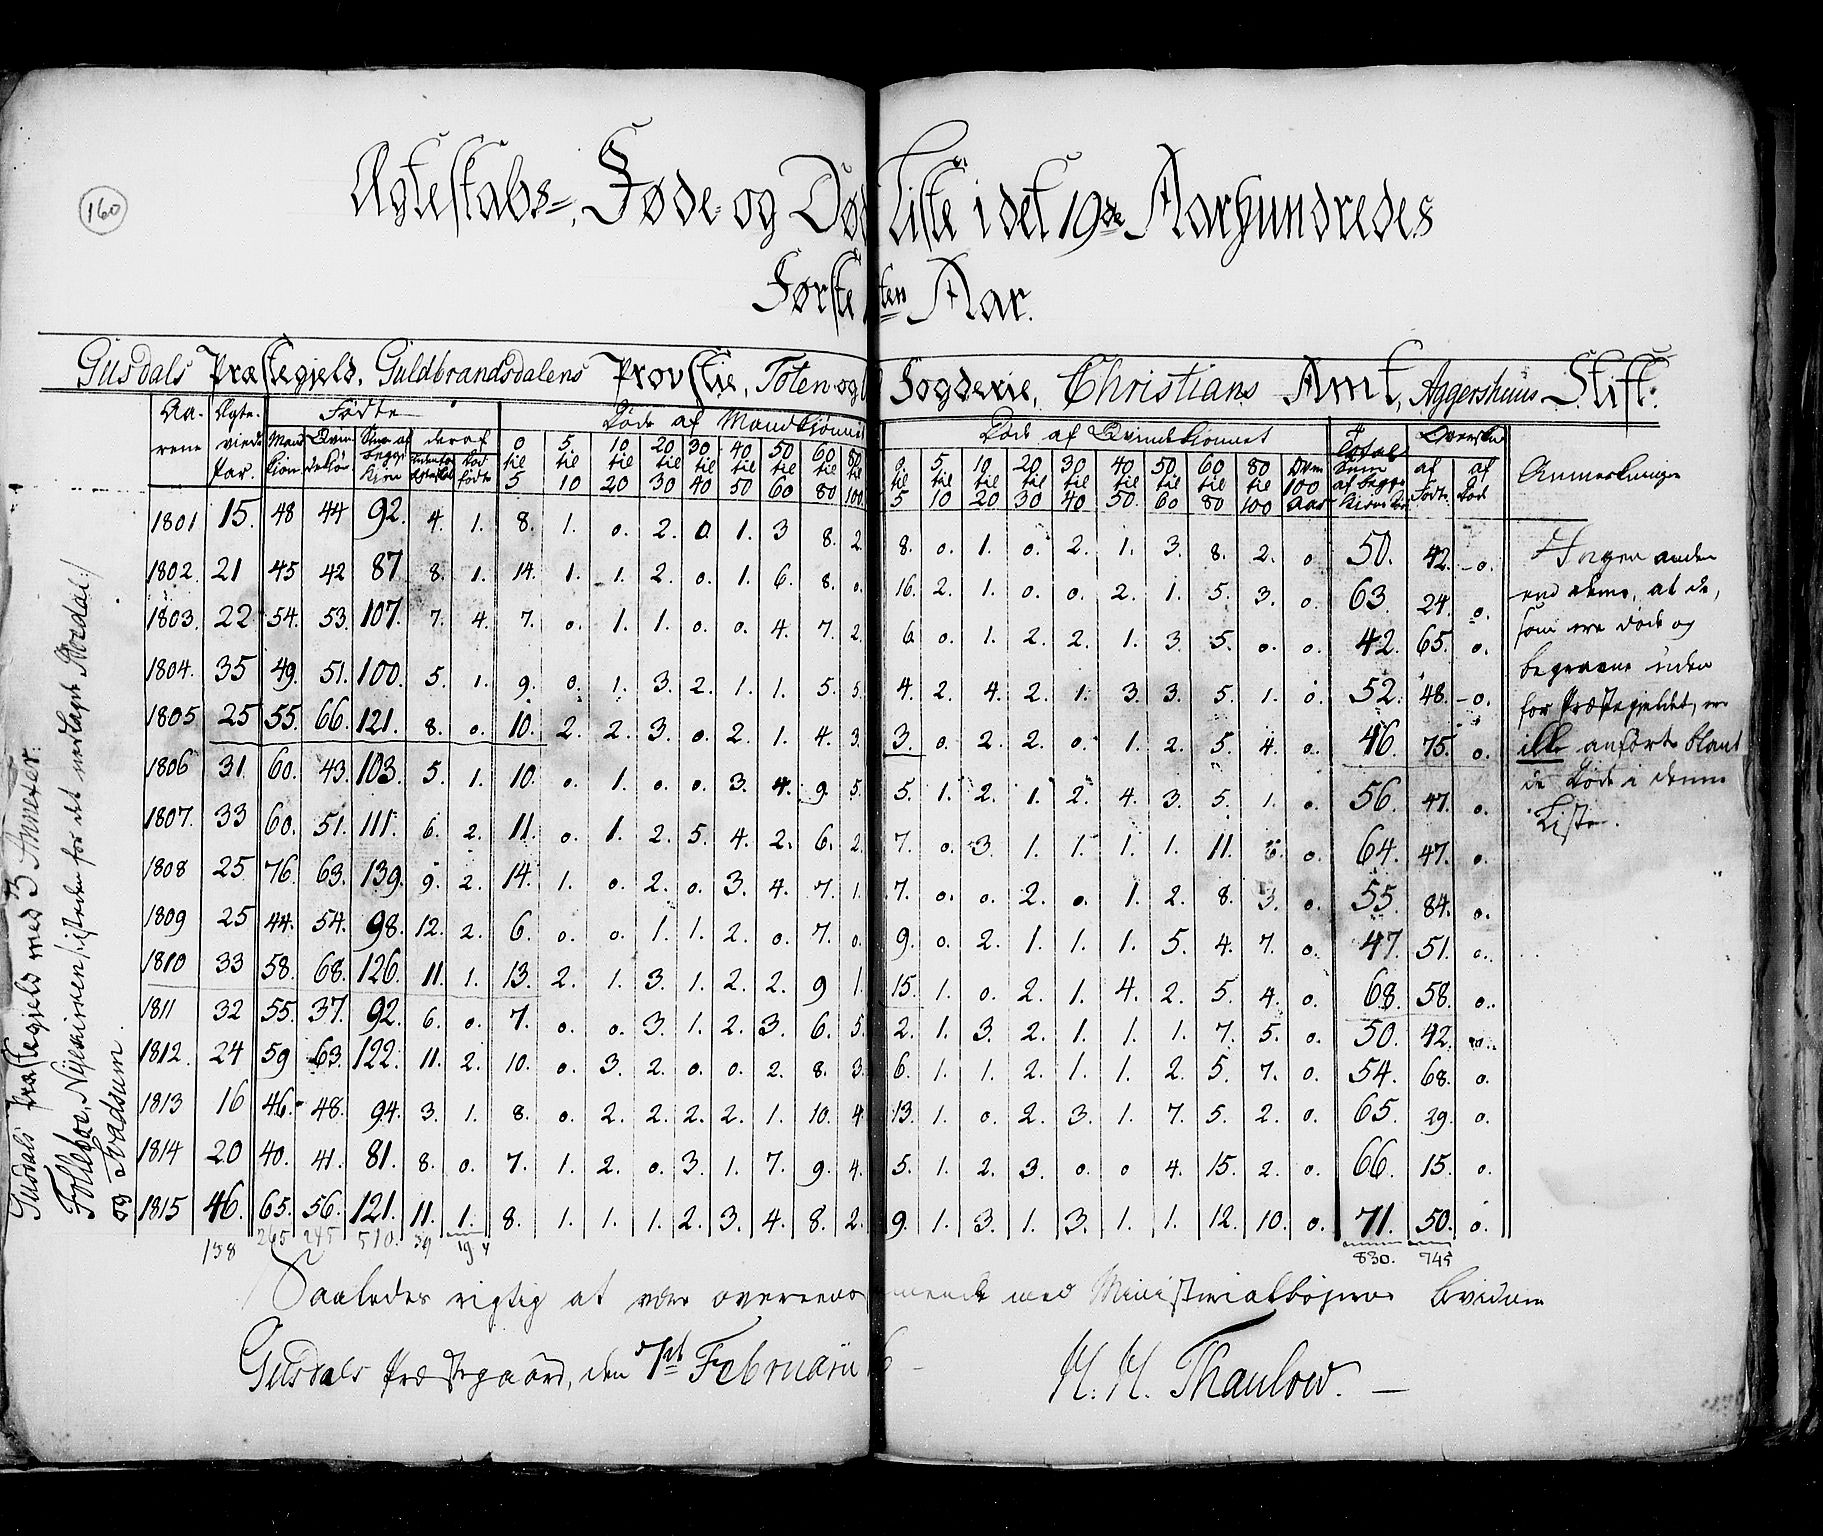 160
Ægteskabs-, Føde- og Død Liste i det 19de Aarhundredes
Første ten Aar.
Gusdals Præstegjeld, Guldbrandsdalens Provstie, Toten og Fogderie, Christians Amt, Aggershuus Stift:
Aa- Ægte- Fødte Døde af Mandkiønnet Døde af Qvindekiønnet Total Oversku
rene viede Mand Qvin Sum af deraf Sum af af Anmerkninger
Par. kiøn dekiøn begge død af begge Fødte Død
kiøn fødte kiøn
0 til 5 5 til 10 10 til 20 20 til 30 30 til 40 40 til 50 50 til 60 60 til 80 80 til 100 0 til 5 5 til 10 10 til 20 20 til 30 30 til 40 40 til 50 50 til 60 60 til 80 80 til 100 Over 100 Aar
1801 15. 48 44 92. 4. 1. 8. 1. 0. 2. 0 1. 3 8. 2. 8. 0. 1. 0. 2. 1. 3. 8. 2. 0 50. 42. 0.
1802. 21 45 42 87 8. 1. 14. 1. 1. 2. 0. 1. 6. 8. 0. 16. 2. 1. 0. 0. 2. 1. 5. 3. 0. 63. 24 0.
1803. 22 54. 53. 107. 7. 4. 7. 0. 1. 1. 0. 0. 4. 7. 2. 6. 0. 1. 2. 2. 1. 3. 5. 0. 0. 42. 65. 0.
1804. 35 49. 51. 100. 5. 1. 9. 0. 1. 3. 2. 1. 1. 5. 5. 4. 2. 4. 2. 1. 3. 3. 5. 1. 0. 52. 48. 0.
1805 25 55. 66. 121. 8. 0. 10. 2. 2. 3. 0. 2. 1. 4. 3. 3. 0. 2. 2. 0. 1. 2. 5. 4. 0. 46. 75. 0.
1806 31 60. 43. 103. 5. 1. 10. 0. 1. 0. 0. 3. 4. 9. 5. 5. 1. 2. 1. 2. 4. 3. 5. 1. 0. 56. 47. 0.
1807. 33 60. 51. 111. 6. 2. 11. 0. 1. 2. 5. 4. 2. 6. 2. 7. 0. 3. 1. 1. 1. 1. 11. 0. 64. 47. 0.
1808 25 76. 63. 139. 9. 2. 14. 1. 0. 2. 0. 3. 4. 7. 1. 7. 0. 0. 2. 0. 1. 2. 8. 3. 0. 55. 84. 0.
1809 25 44. 54. 98. 12. 2. 6. 0. 0. 1. 1. 2. 0. 7. 0. 9. 0. 2. 1. 1. 1. 5. 4. 7. 0. 47. 51. 0.
1810 33 58. 68. 126. 11. 1. 13. 2. 1. 3. 1. 2. 2. 9 1. 15. 1. 0. 2. 1. 4. 2. 5. 4. 0. 68. 58. 0.
1811 32 55. 37. 92. 6. 0. 7. 0. 0. 3. 1. 2. 3. 6. 5. 2. 1. 3. 2. 1. 1. 1. 7. 5. 0. 50. 42. 0.
1812. 24 59 63. 122. 11. 2. 10. 0. 3. 2. 0. 0. 2. 8. 3. 6. 1. 1. 2. 1. 1. 2. 5. 7. 0. 54. 68. 0.
1813 16 46. 48. 94. 3. 1. 8. 0. 2. 2. 2. 2. 1. 10. 4. 13. 1. 0 2. 3. 1. 7. 5. 2. 0. 65. 29. 0.
1814 20 40. 41. 81. 8. 0. 7. 1. 2. 0. 3. 1. 7. 9. 4. 5. 1. 2. 3. 0. 0 4. 15. 2. 0. 66. 15. 0.
1815 46. 65. 56. 121. 11. 1. 8. 1. 1. 1. 2. 3. 4. 8. 2. 9. 1. 3. 1. 3. 1. 1. 12. 10. 0. 71. 50. 0.
138 265 245 510. 39 19 4 830. 745
Ingen anden
end denne, at de,
som ere døde og
begravne uden
for Præstegjeldet, ere
ikke anførte blant
de Døde i denne
Liste.
Gusdals Præstegjeld med 3 Annexer:
Folleboe, Nykirken
og Svadsum
Saaledes rigtig at være overeens mende med Ministerialbøgerne
Gusdals Præstegaard, den 7de Februarii
H. H. Thaulow.